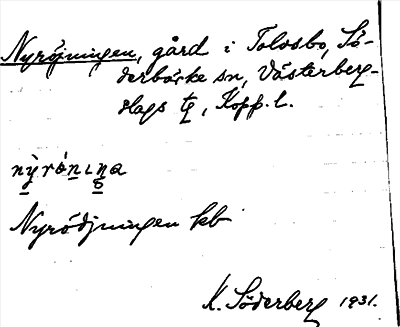 Nyröjningen, gård i Tolvsbo, Sö-
derbärke sn, Västerberg-
slags tg, Kopp. l.
Nyrödjningen kb
K. Söderberg 1931.